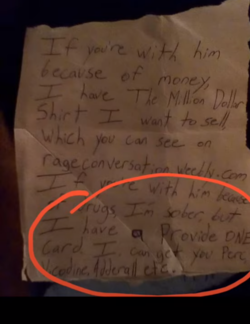 If you're with him
because of money,
I have The Million Dollar
Shirt I want to sell
which you can see on
rageconversation weekly.com
If you're with him because
drugs I'm sober, but
I have a Provide ONE
Card I can get you Perc,
Nicotine, Adderall etc.